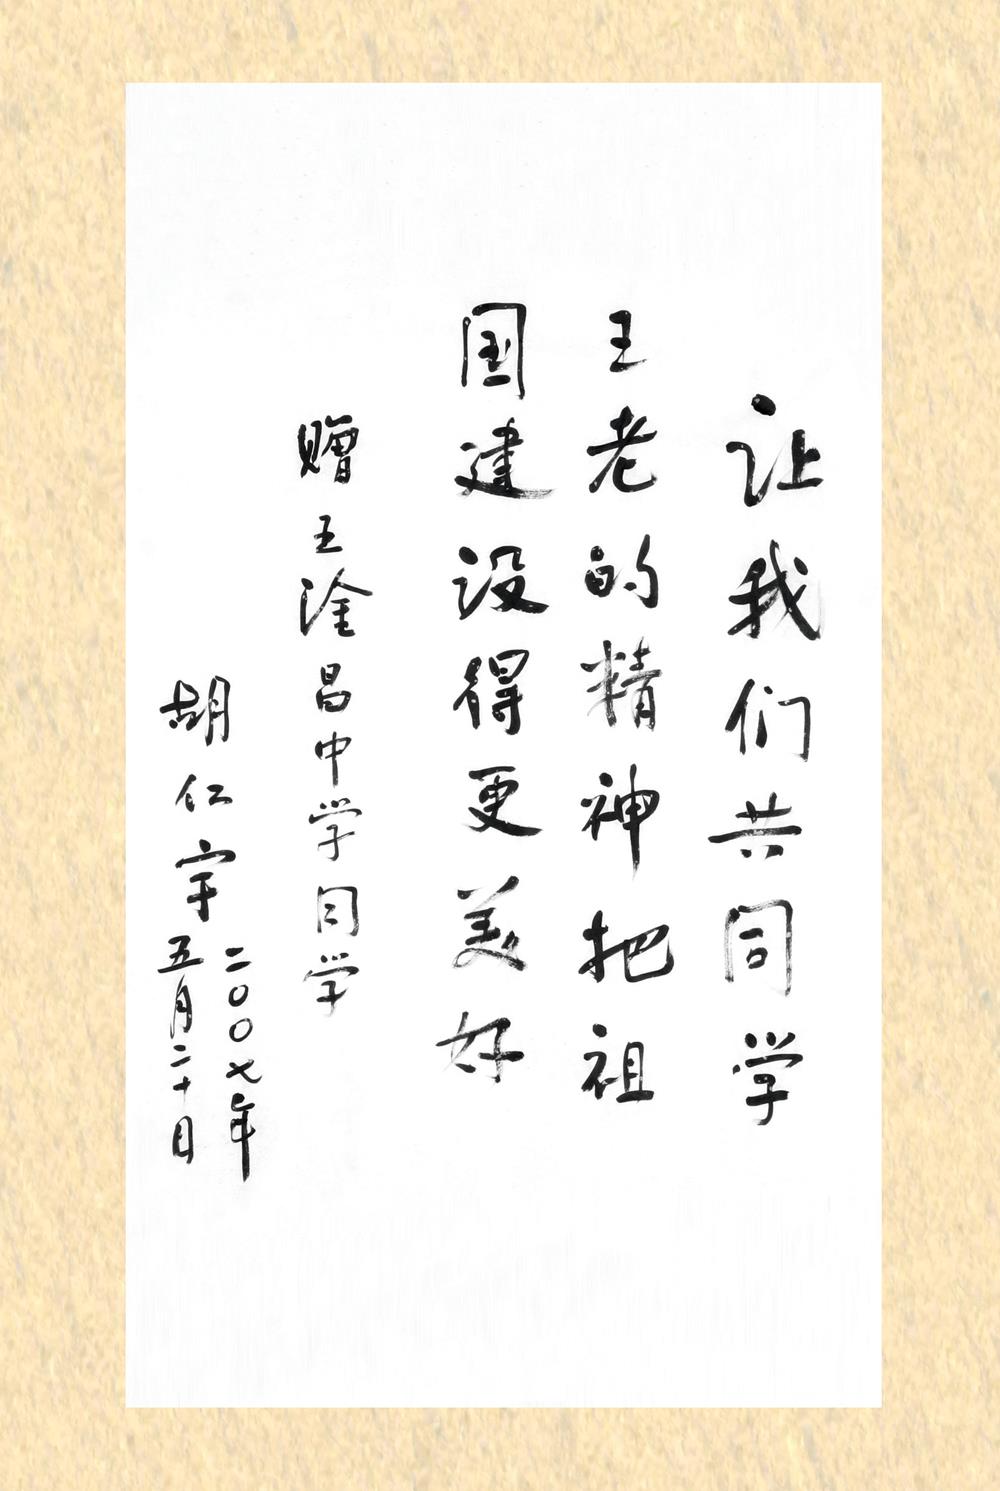 让我们共同学
王老的精神把祖
国建设得更美好
赠王淦昌中学同学
胡仁宇
二〇〇七年
五月二十日